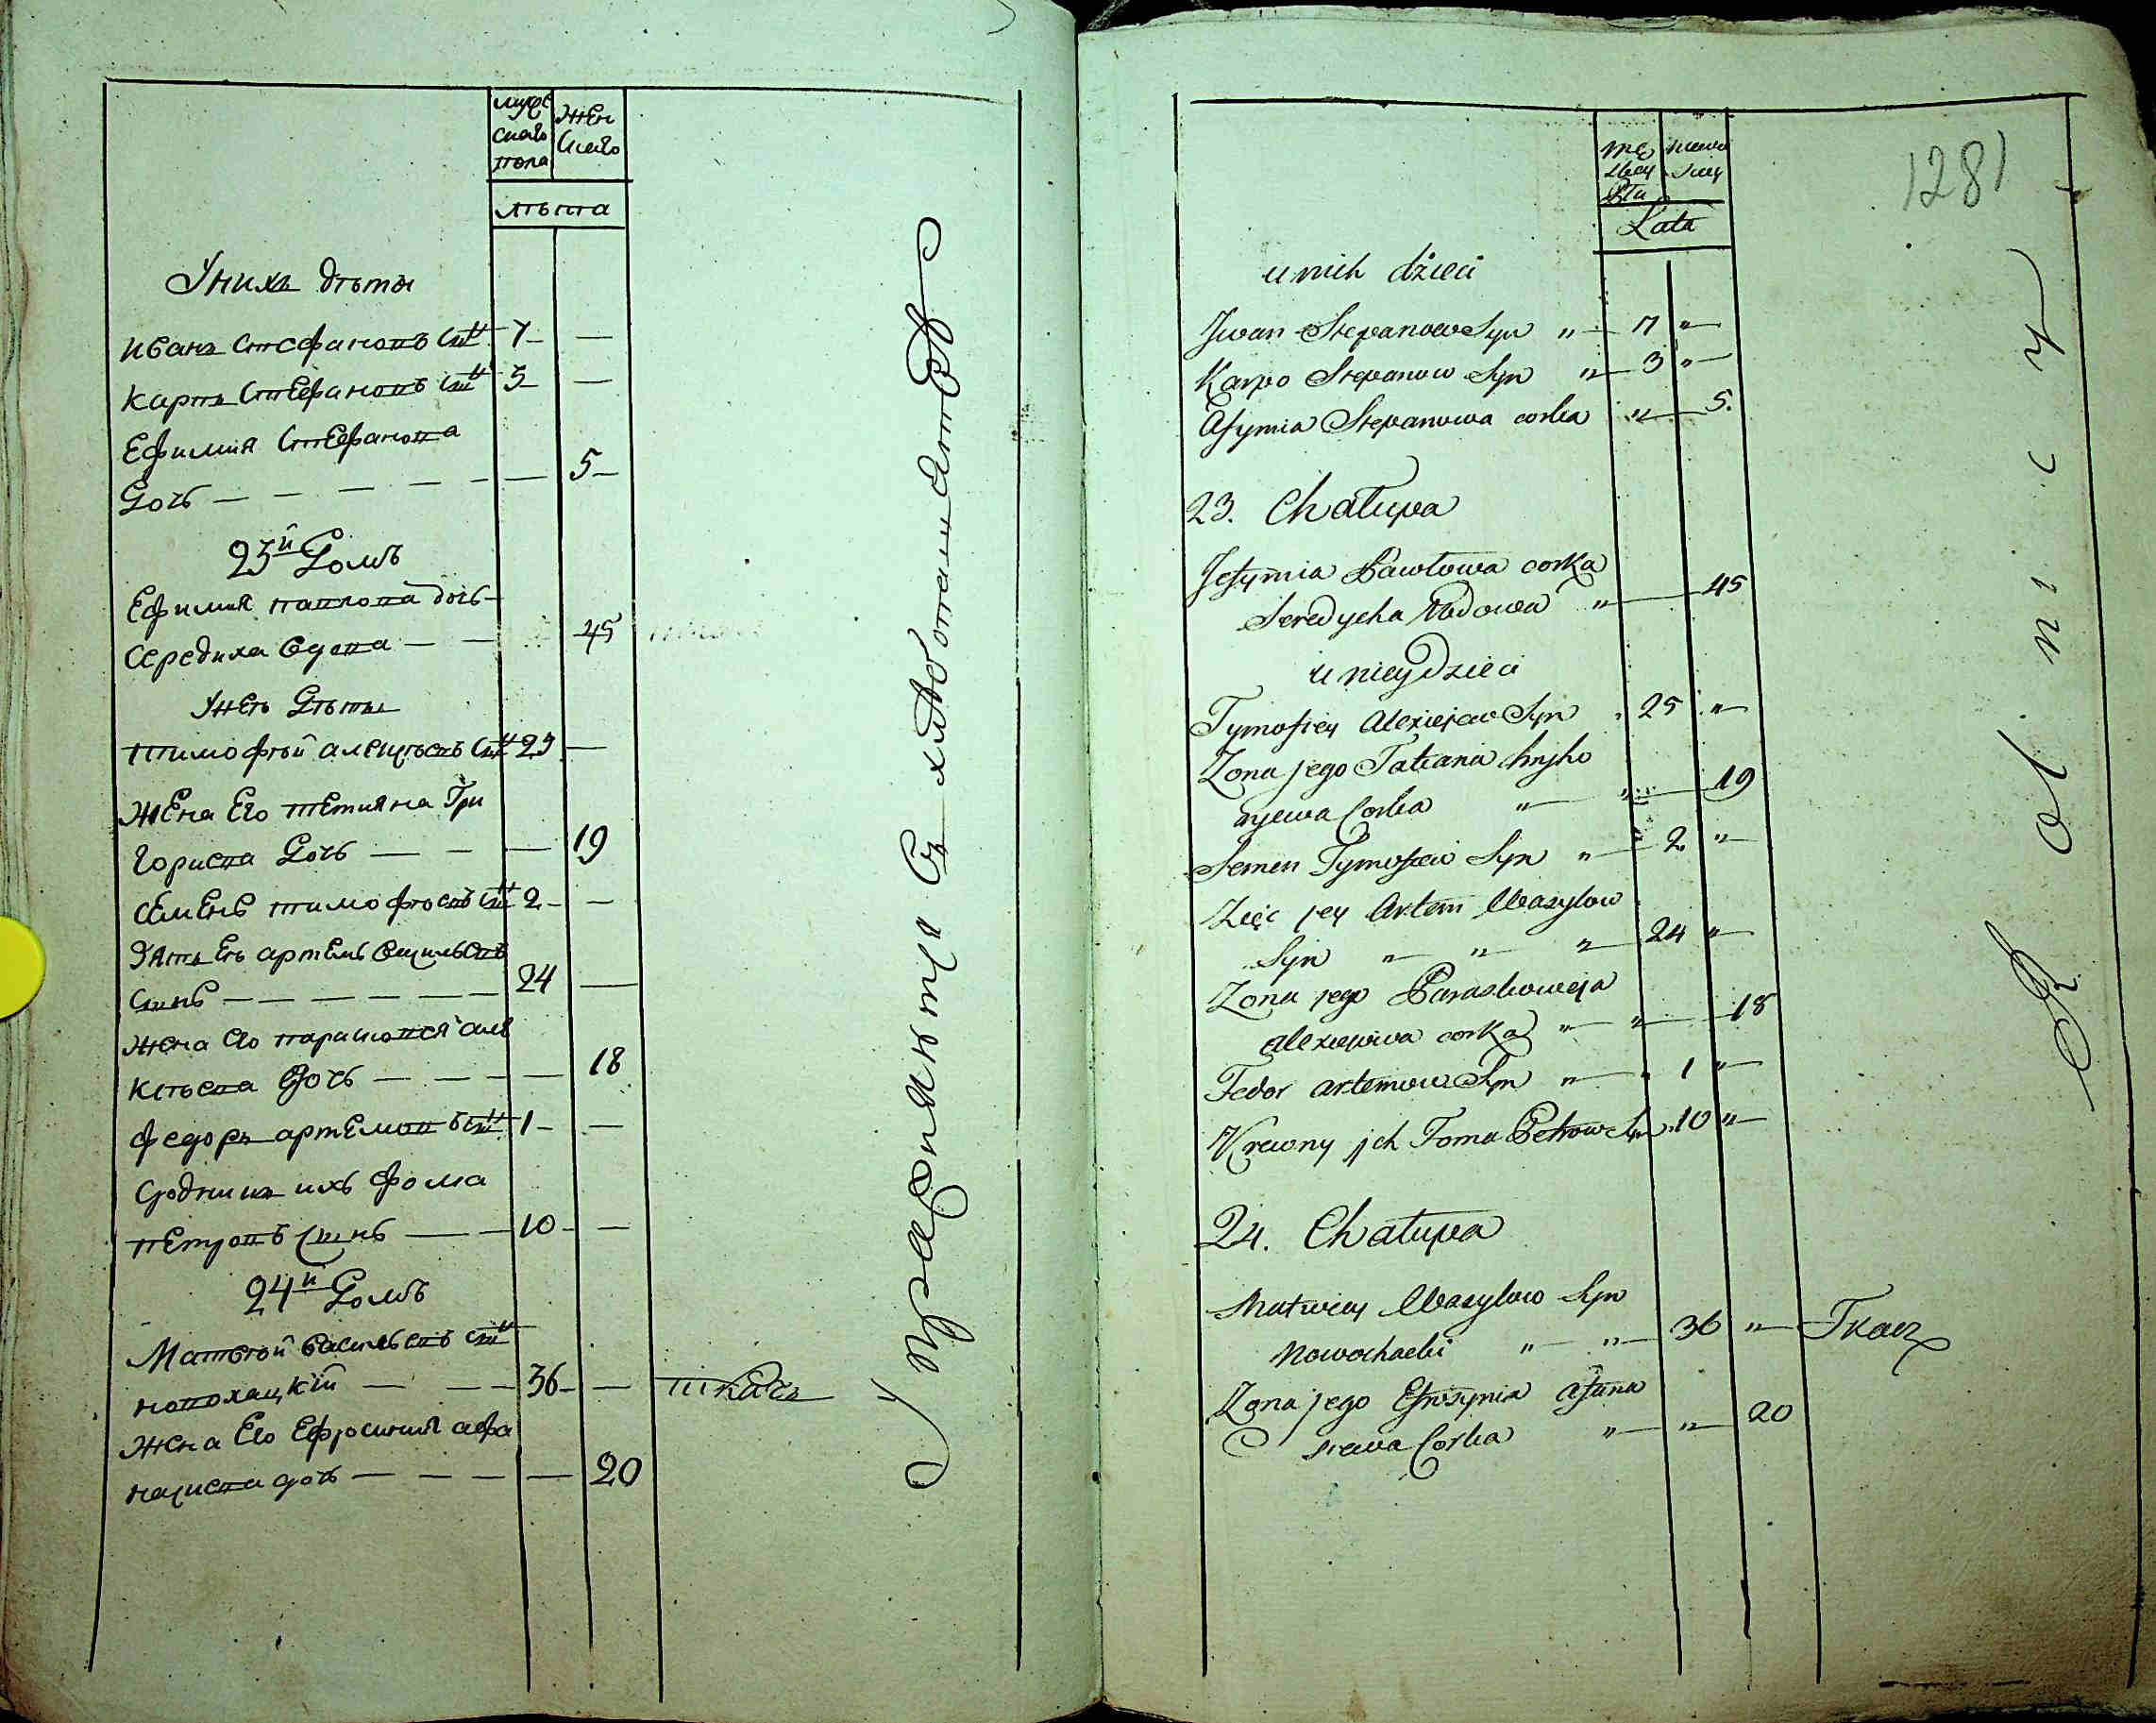 мужескаго пола
женскаго
лѣта
У нихъ дѣти
иванъ стефановъ снъ 7 —
карпъ стефановъ снъ 3 —
Ефимия стефанова
дочь — — — — — 5 —
23й домъ
Ефимия павлова дочь
середиха вдова — — 45
У нея дѣти
тимофѣй алексѣевъ снъ 25 —
жена его тетияна Гри
гориева дочь — — — 19
семенъ тимофѣевъ снъ 2 —
зять ея артемъ васильевъ
синъ — — — — — 24 —
жена его парасковея але
ксѣева дочь — — — — 18
федоръ артемовъ снъ 1 — —
сродникъ ихъ фома
петровъ синъ — — 10 —
24й домъ
Матвѣй васильевъ снъ
новохацкий — — — 36 — — ткачь
жена его ефросиния афа
насиева дочь — — — — — 20
Упражняются в хлѣбопашествѣ
męzkey płci
Lata
1281
u nich dzieci
Jwan Stepanow Syn " — 7 " —
Karpo Stepanow Syn " — 3 " —
Afymia Stepanowa corka " — 5.
23. Chałupa
Jefymia Pawłowa corka
Seredycha Wdowa " — 45
u niey Dzieci
Tymofiey Alexiejew Syn " 25 " —
Zona jego Tatiana Hryho
ryewa Corka " — " — 19
Semen Tymofiew Syn " — 2 " —
Zięc jey Artem Wasylow
Syn " — " — " — 24 " —
Zona jego Paraskoweja
alexiejewa corka " — " — 18
Fedor artemow Syn " — " 1 " —
Krewny jch Foma Petrow Syn 10 " —
24. Chałupa
Matwiey Wasylow Syn
Nowochacki " — " — 36 " — Tkacz
Zona jego Efrosynia afana
siewa Corka " — " — 20
Rolnicy